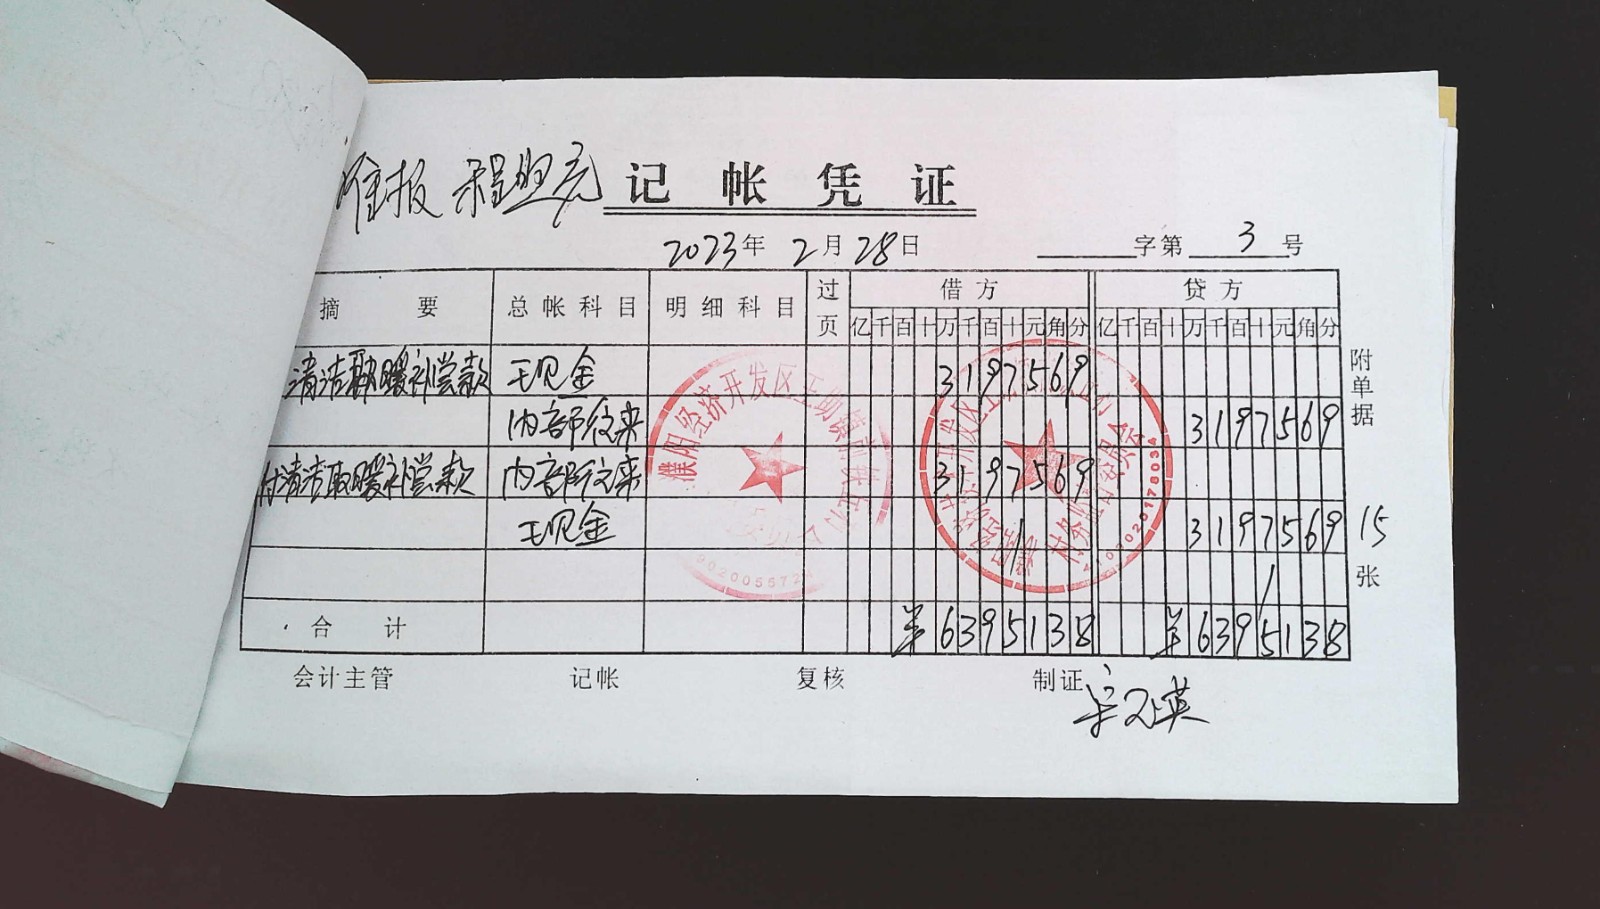 准报 程盟亮 记帐凭证
2023年 2月28日 字第 3 号
摘要 总帐科目 明细科目 过页 借方 贷方
亿千百十万千百十元角分 亿千百十万千百十元角分
清洁取暖补偿款 现金 3197569
内部往来 3197569
付清洁取暖补偿款 内部往来 3197569
现金 3197569
合计 ¥6395138 ¥6395138
附单据 15 张
会计主管 记帐 复核 制证
濮阳经济开发区王助镇
村务监督委员会